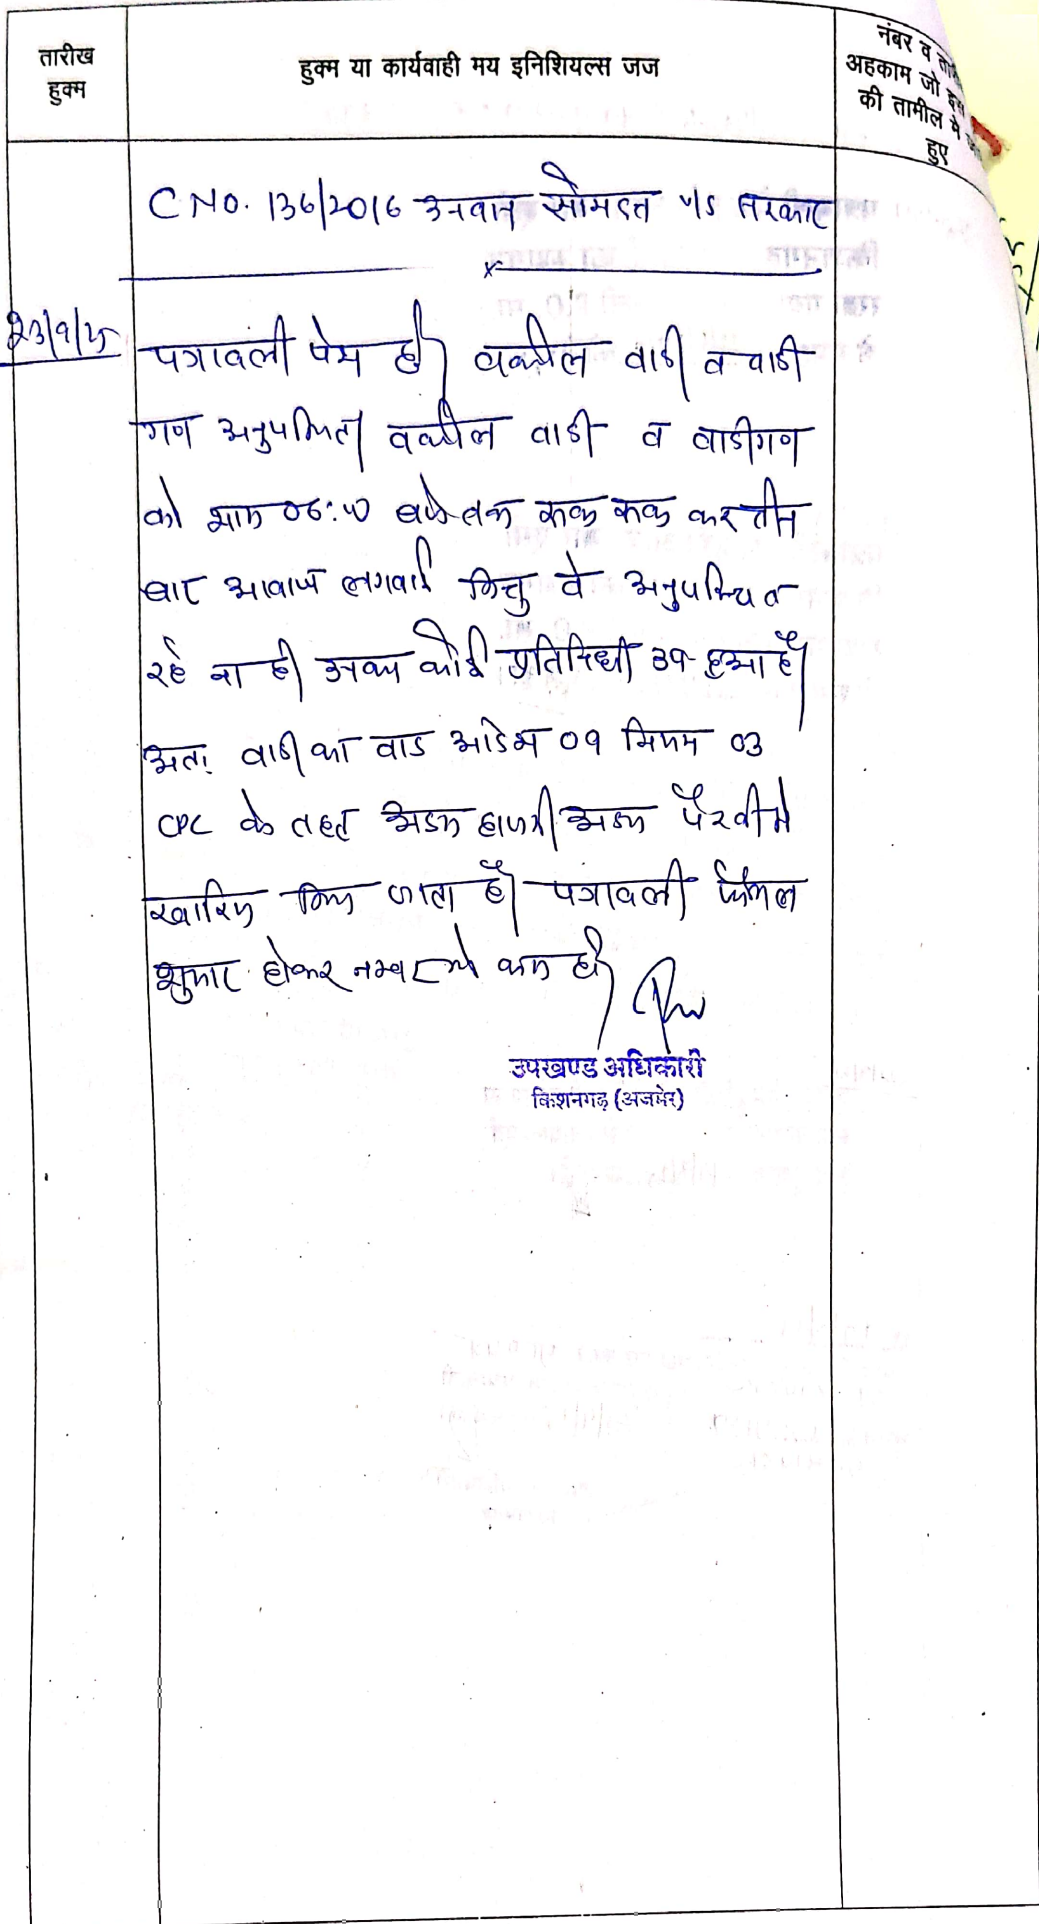 तारीख
हुक्म
हुक्म या कार्यवाही मय इनिशियल्स जज
नंबर व
अहकाम जो इस
की तामील मे
हुए
C NO. 136/2016 उनवान सोमदत्त v/s सरकार
23/9/25
पत्रावली पेश हुई। वकील वादी व वादी
गण अनुपस्थित। वकील वादी व वादीगण
को शाम 06:00 बजे तक रूक रूक कर तीन
बार आवाज लगवाई किन्तु वे अनुपस्थित
रहे ना ही उनका कोई प्रतिनिधी उप- हुआ है।
अतः वादी का वाद आदेश 09 नियम 03
CPC के तहत अदम हाजरी अदम पैरवी मे
खारिज किया जाता है। पत्रावली फैसल
शुमार होकर नम्बर से कम हो।
उपखण्ड अधिकारी
किशनगढ़ (अजमेर)